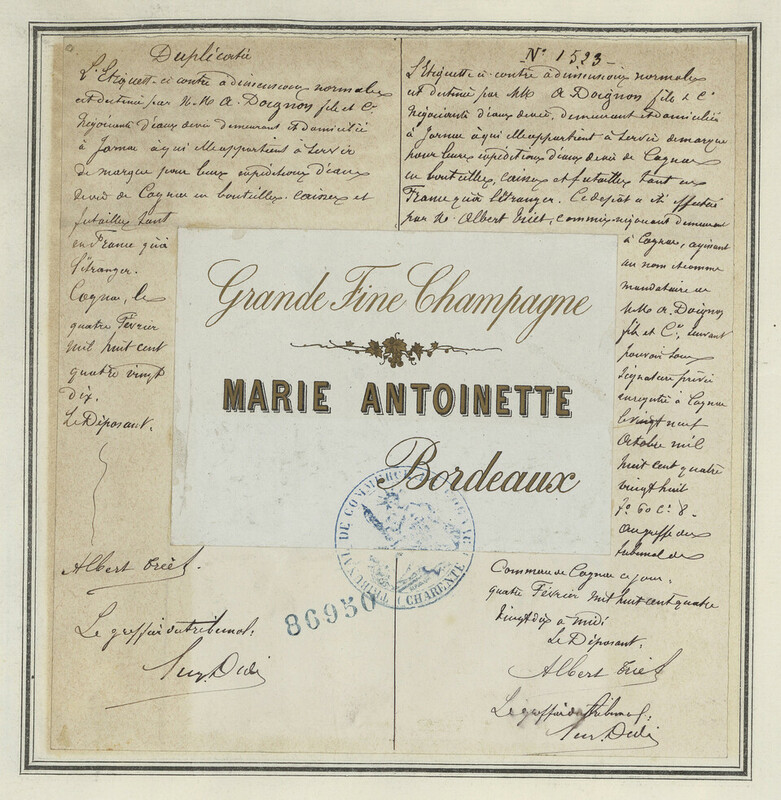 Duplicata
L'Etiquette ci contre à dimensions normales
est destinée par M.M. A. Doignon fils et Cie
Négociants d'eaux de vie demeurant et domicilié
à Jarnac à qui elle appartient à servir
de marque pour leurs expéditions d'eaux
de vie de Cognac en bouteilles, caisses et
futailles tant
en France qu'à
l'étranger.
Cognac, le
quatre Février
mil huit cent
quatre vingt
dix.
Le Déposant.
Albert Triet.
Le greffier du tribunal,
No 1523
L'Etiquette ci contre à dimensions normales
est destinée par MM A Doignon fils & Cie
Négociants d'eaux de vie, demeurant et domiciliés
à Jarnac à qui elle appartient à servir de marque
pour leurs expéditions d'eaux de vie de Cognac
en bouteilles, caisses et futailles tant en
France qu'à l'étranger. Ce dépôt a été effectué
par M. Albert Triet, commis négociant demeurant
à Cognac, agissant
au nom et comme
mandataire de
MM A. Doignon
fils et Cie, suivant
pouvoir sous
signature privée
enregistré à Cognac
le vingt neuf
Octobre mil
huit cent quatre
vingt huit
fo 60 Co 8.
au greffe du
tribunal de
Commerce de Cognac ce jour,
quatre Février mil huit cent quatre
vingt dix à midi
Le Déposant,
Albert Triet
Le greffier du tribunal,
Grande Fine Champagne
MARIE ANTOINETTE
Bordeaux
TRIBUNAL DE COMMERCE DE COGNAC
CHARENTE
86950